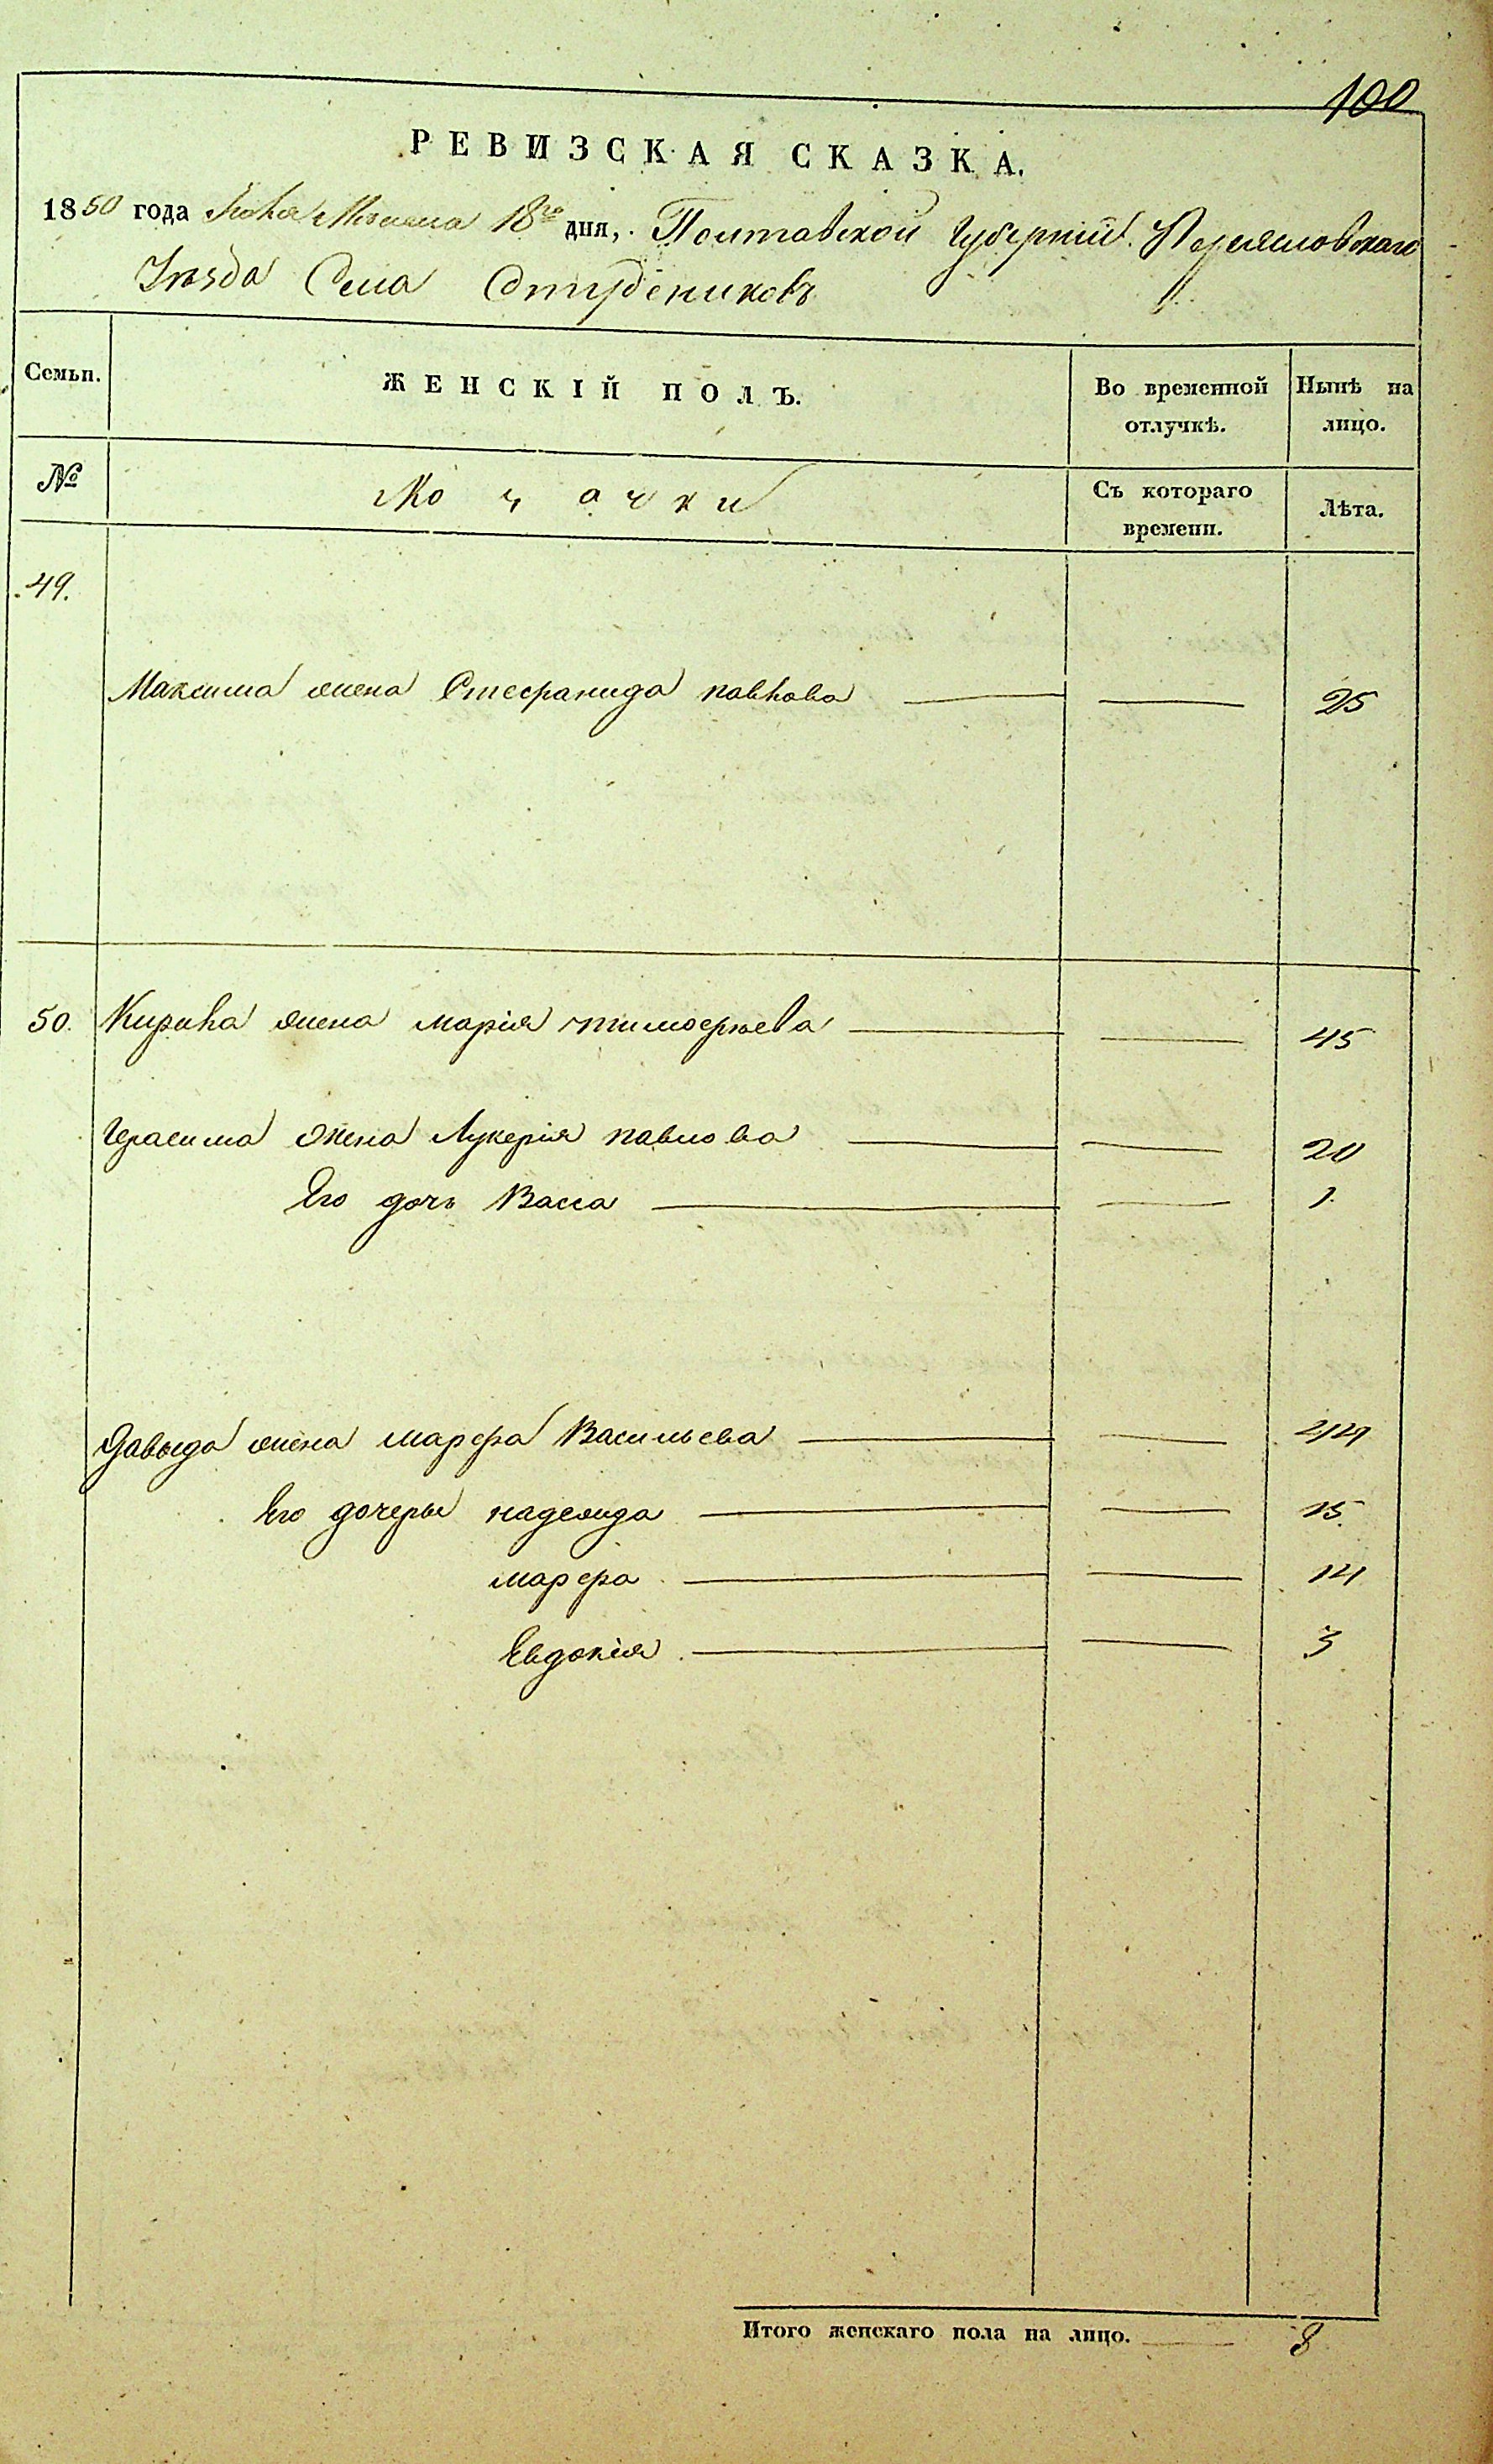 100
РЕВИЗСКАЯ СКАЗКА.
1850 года Іюня Месяца 18го дня, Полтавской Губерніи Переяславскаго
Уѣзда Села Студениковъ
Семьи. ЖЕНСКІЙ ПОЛЪ. Во временной отлучкѣ. Нынѣ на лицо.
№ Козачки Съ котораго времени. Лѣта.
49.
Максима жена Стефанида павлова 25
50. Кирила жена марія тимофѣева 45
Герасима жена Лукерія павлова 20
Его дочь Васса 1.
Давыда жена марфа Васильева 44
Его дочеры надежда 15.
марфа 14
Евдокія 3
Итого женскаго пола на лицо. 8